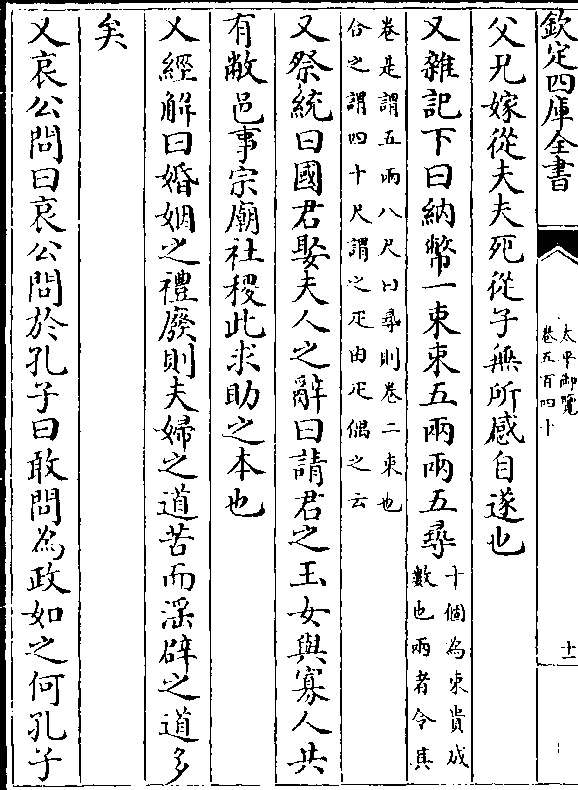 欽定四庫全書
太平御覽
卷五百四十
十一
父兄嫁從夫夫死從子無所感自遂也
又雜記下曰納幣一束束五兩兩五尋十個為束貴成
數也兩者令其
卷是謂五兩八尺曰尋則卷二束也
合之謂四十尺謂之疋由疋偶之云
又祭統曰國君娶夫人之辭曰請君之玉女與寡人共
有敝邑事宗廟社稷此求助之本也
又經解曰婚姻之禮廢則夫婦之道苦而淫辟之道多
矣
又哀公問曰哀公問於孔子曰敢問為政如之何孔子